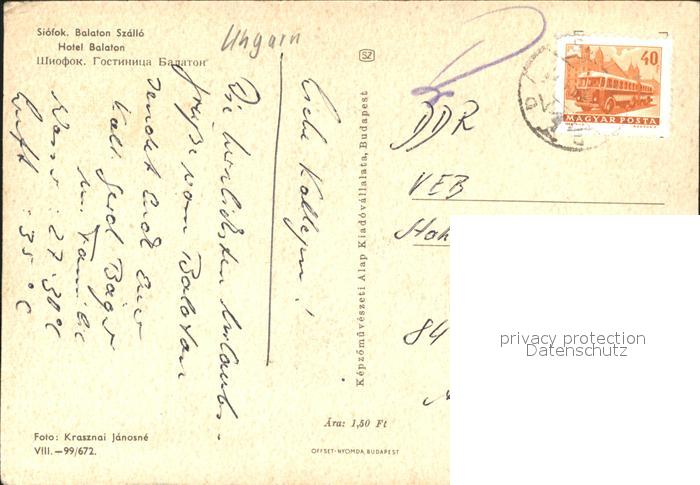 Siófok. Balaton Szálló
Hotel Balaton
Шиофок. Гостиница Балатон
Ungarn
SZ
40
MAGYAR POSTA
Liebe Kollegen!
Die herzlichsten Urlaubs-
grüße vom Balaton
sendet Euch Euer
Koll. Gerd
u. Familie
Wasser: 27-30°C
Luft: 35°C
Képzőművészeti Alap Kiadóvállalata, Budapest
DDR
VEB
84
privacy protection
Datenschutz
Ára: 1,50 Ft
Foto: Krasznai Jánosné
VIII.—99/672.
OFFSET-NYOMDA, BUDAPEST